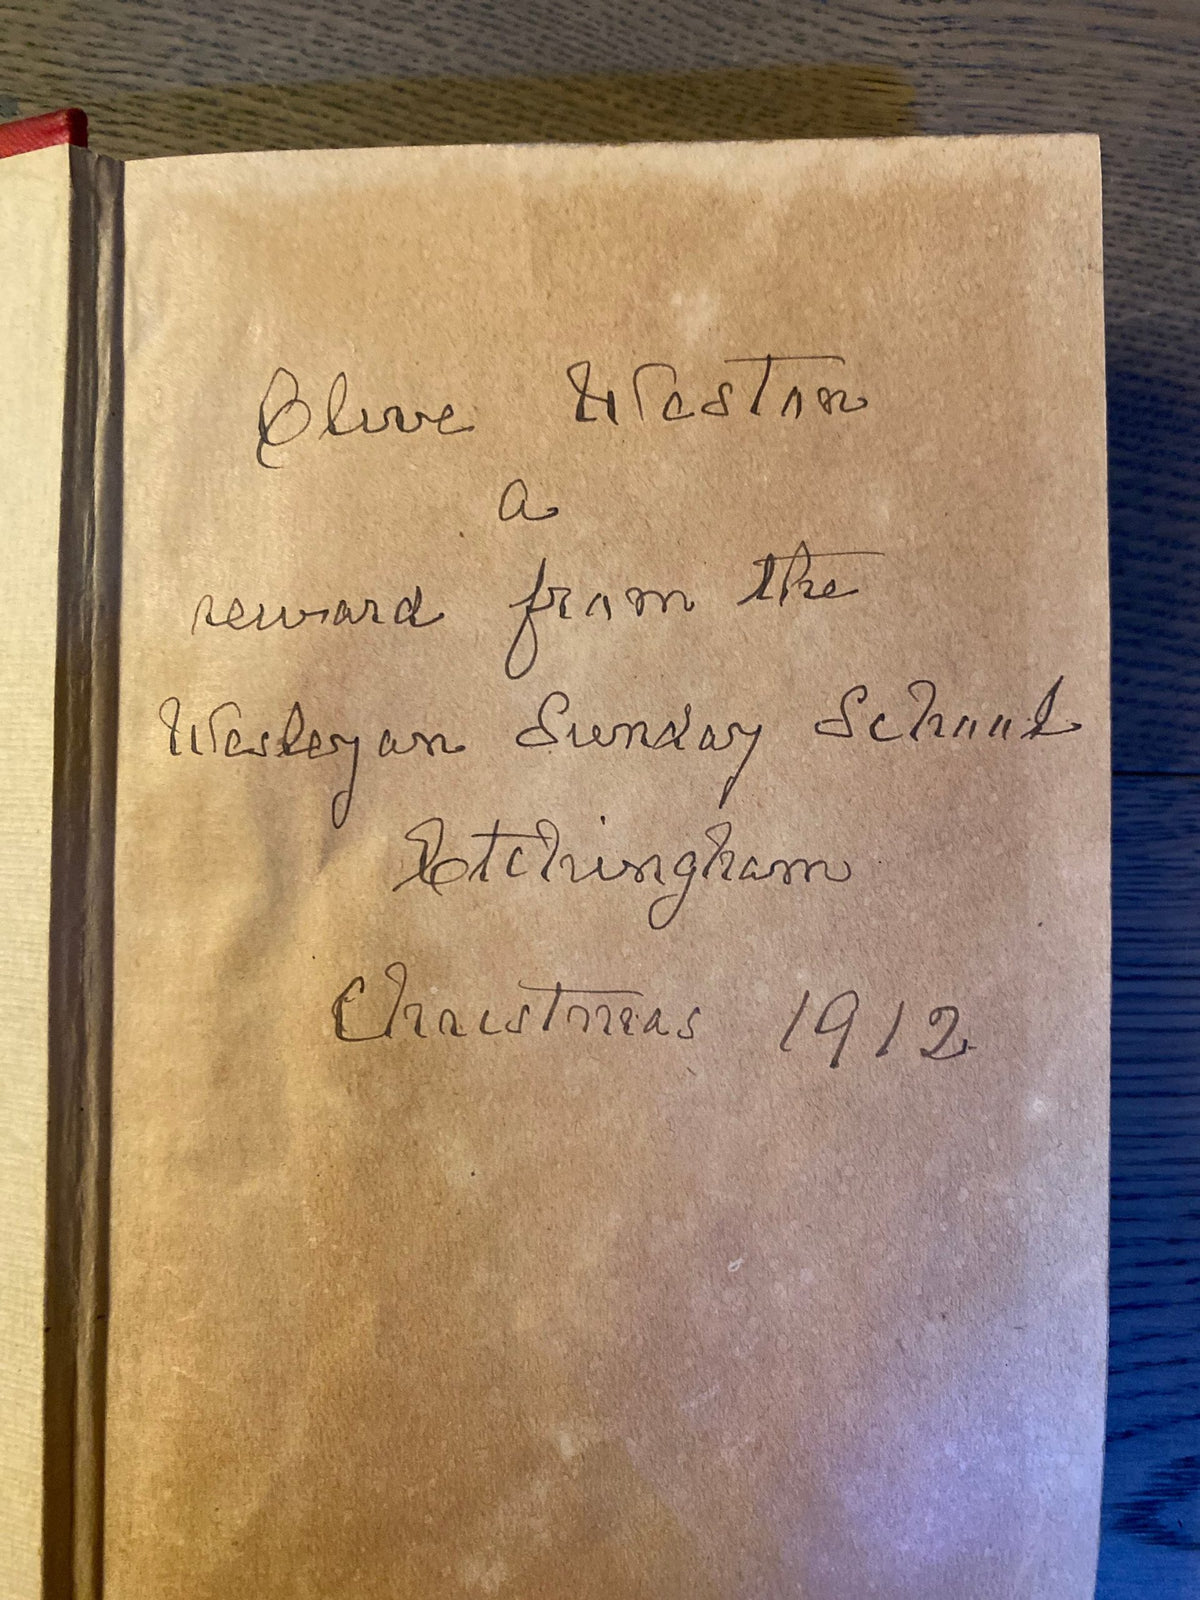 Olive Weston
a
reward from the
Wesleyan Sunday School
Etchingham
Christmas 1912